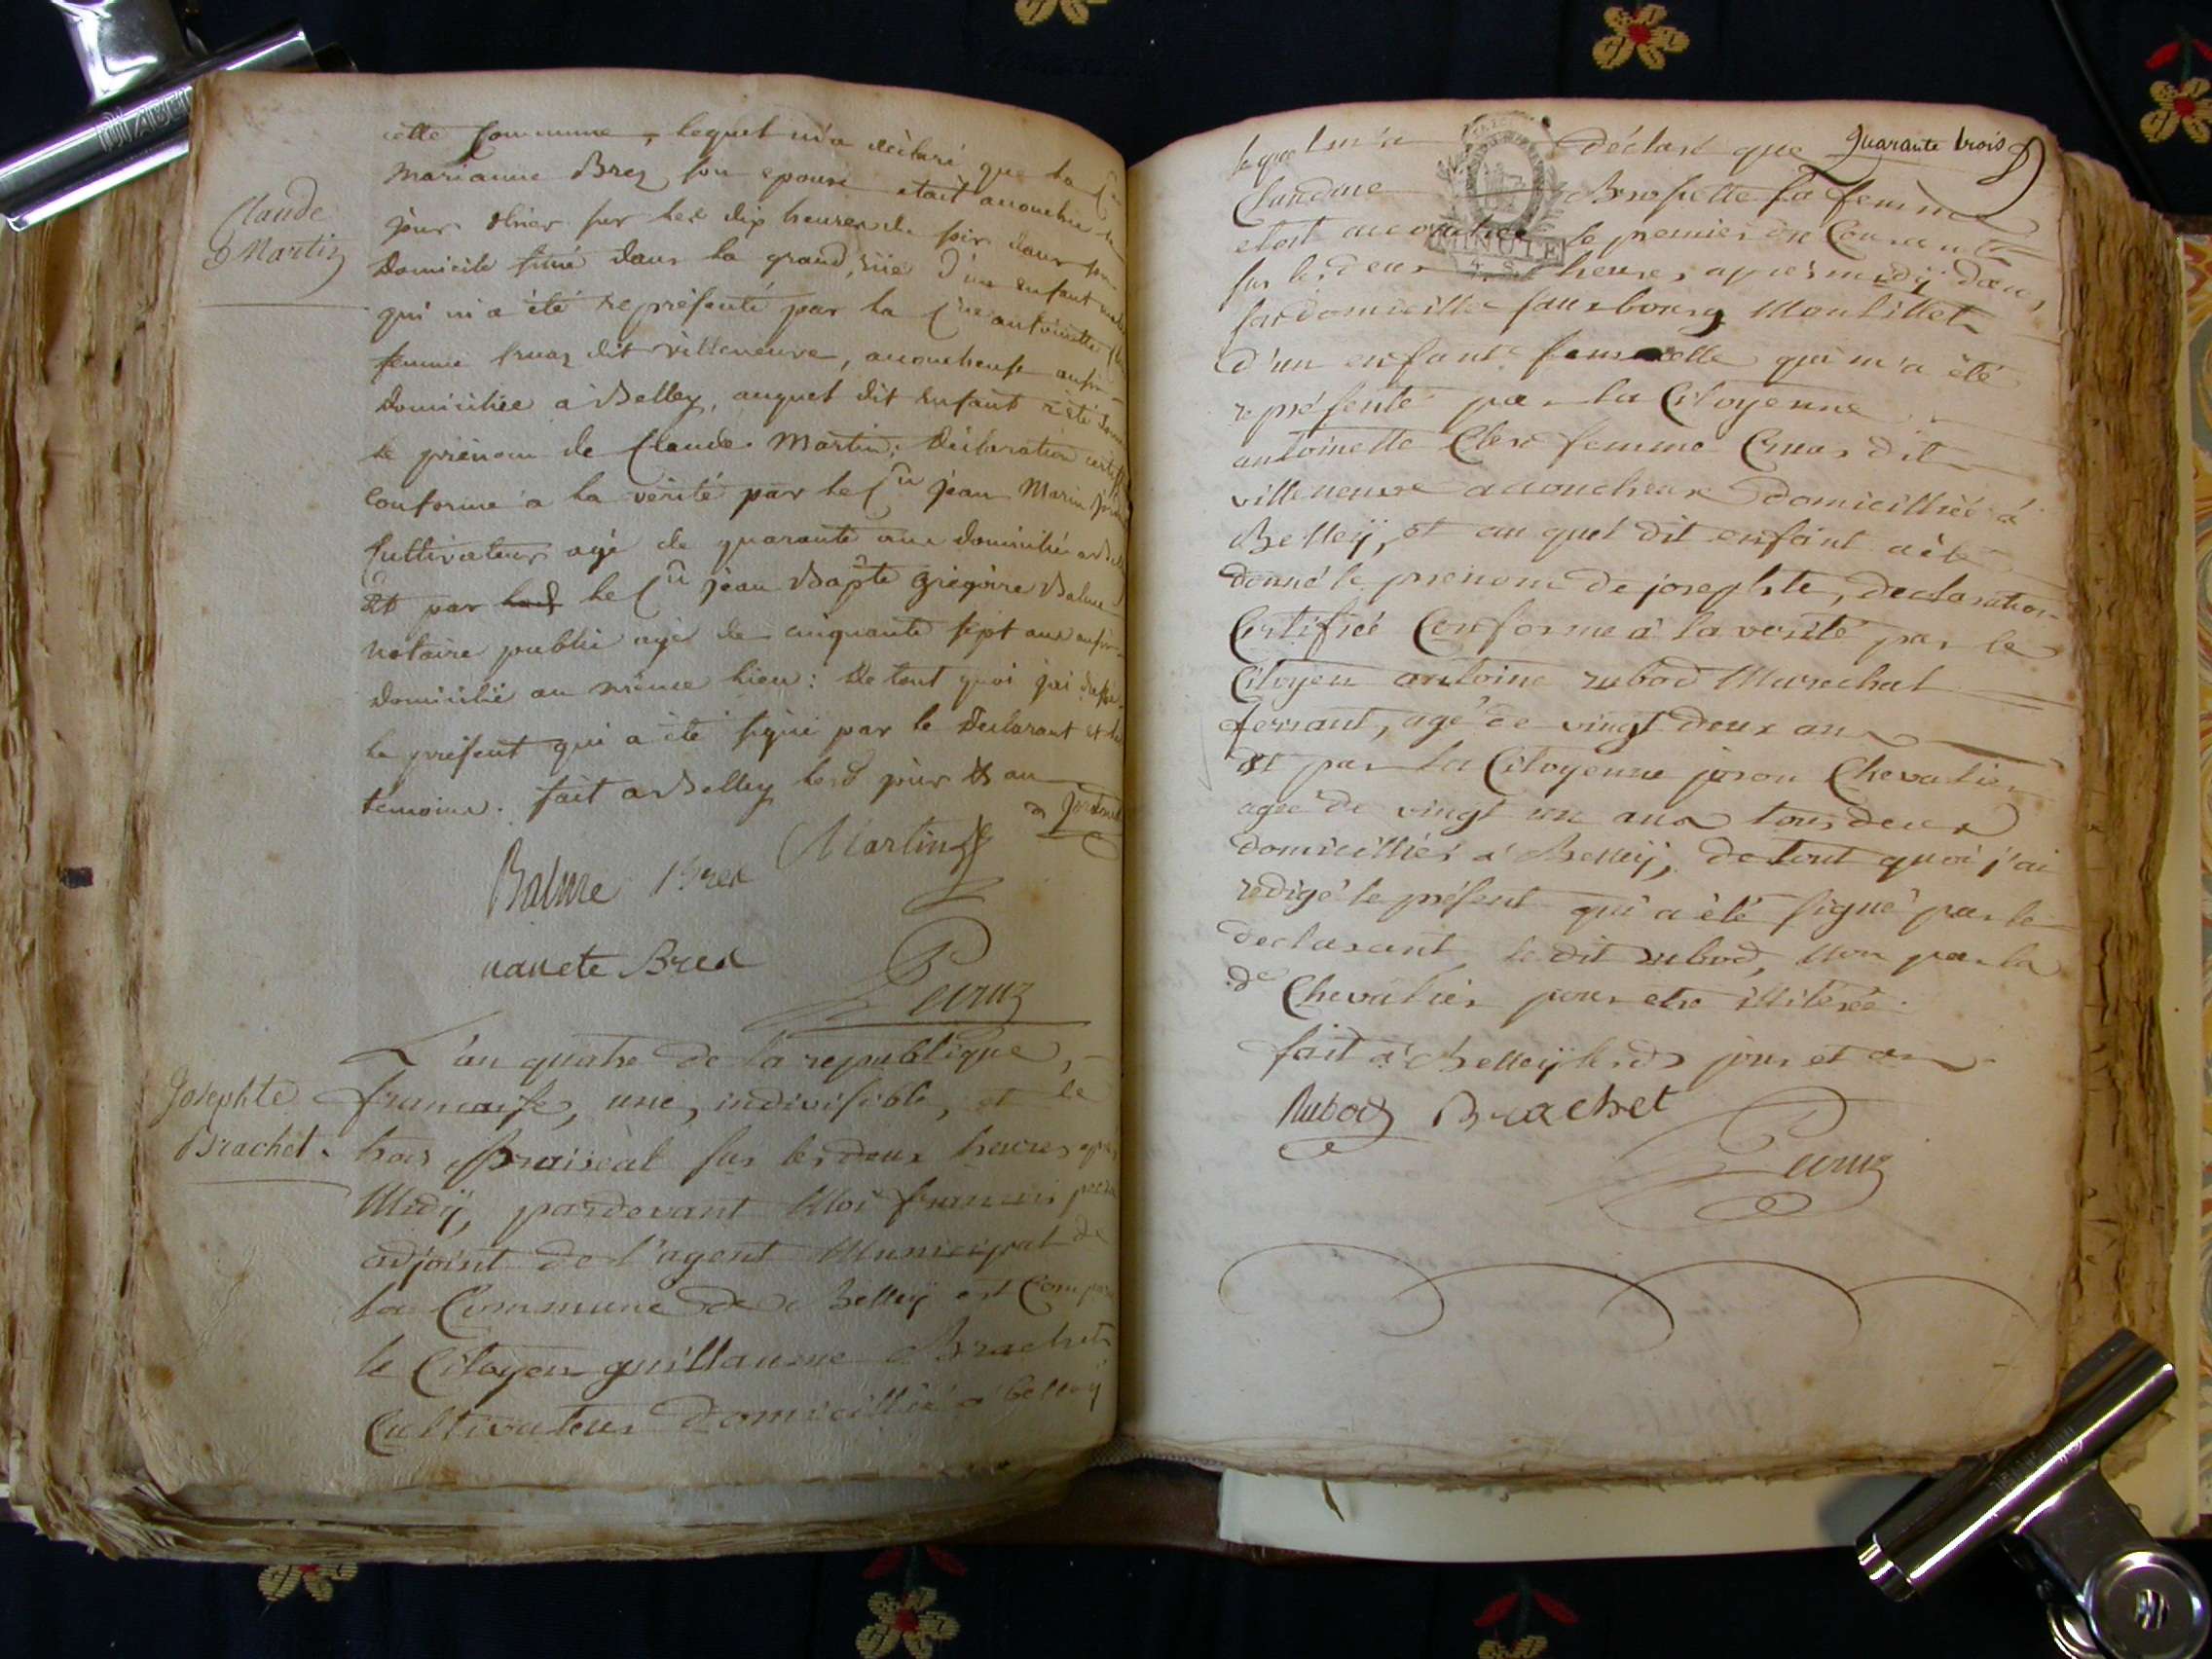 cette Commune, lequel m'a déclaré que la C
marianne Brez son epouse etait accouchée le
jour d'hier sur les dix heures du soir dans son
Domicile situé dans la grand rüe D'un enfant
qui m'a été représenté par la C.ne antoinette
femme Cruaz dit villeneuve, accoucheuse aussi
Domiciliée a Belley, auquel dit Enfant a été donné
le prénom de Claude Martin; Déclaration certifiée
Conforme a la vérité par le C.en jean Marin
Cultivateur agé de quarante ans Domicilié a Belley
Et par le C.en jean Bapte grégoire Balme
Notaire public agé de cinquante sept ans aussi
Domicilié au même lieu: De tout quoi j'ai
le présent qui a été signé par le Déclarant et les
temoins. fait a Belley lesd jour & an
Claude
Martin
Balme Brex Martin
nanete Brex
Pecruz
Josephte
Brachet.
L'an quatre de la republique
francaise, une, indivisible, et le
trois prairéal sur les deux heures après
Midÿ, pardevant Moi francois
adjoint de l'agent Municipal de
la Commune de Belleÿ est Comparu
le Citoyen guillaume Brachet
Cultivateur Domicillié a belleÿ
quarante trois
lequel m'a déclaré que
Claudine la femme
etoit accouchée le premier du Courant
sur les deux heures apres midÿ dans
son domicille fausbourg
d'un enfant femmelle qui m'a été
représenté par la Citoyenne
antoinette Clerc femme Cruas dit
villeneuve accoucheuse Domicilliée á
Belleÿ, et auquel dit enfant a été
donné le prenom de josephte, declaration
Certifiée Conforme á la verité par le
Citoyen antoine rubod Marechal
ferrant, agé de vingt deux ans
Et par la Citoyenne Chevalier
agée de vingt un ans tous deux
domicilliés a Belleÿ, de tout quoi j'ai
redigé le présent qui a été signé par le
declarant, le dit rubod, Non par la
de Chevalier pour etre illiterée.
fait a Belleÿ lesds jour et an.
Rubod Brachet
Pecruz
MINUTE